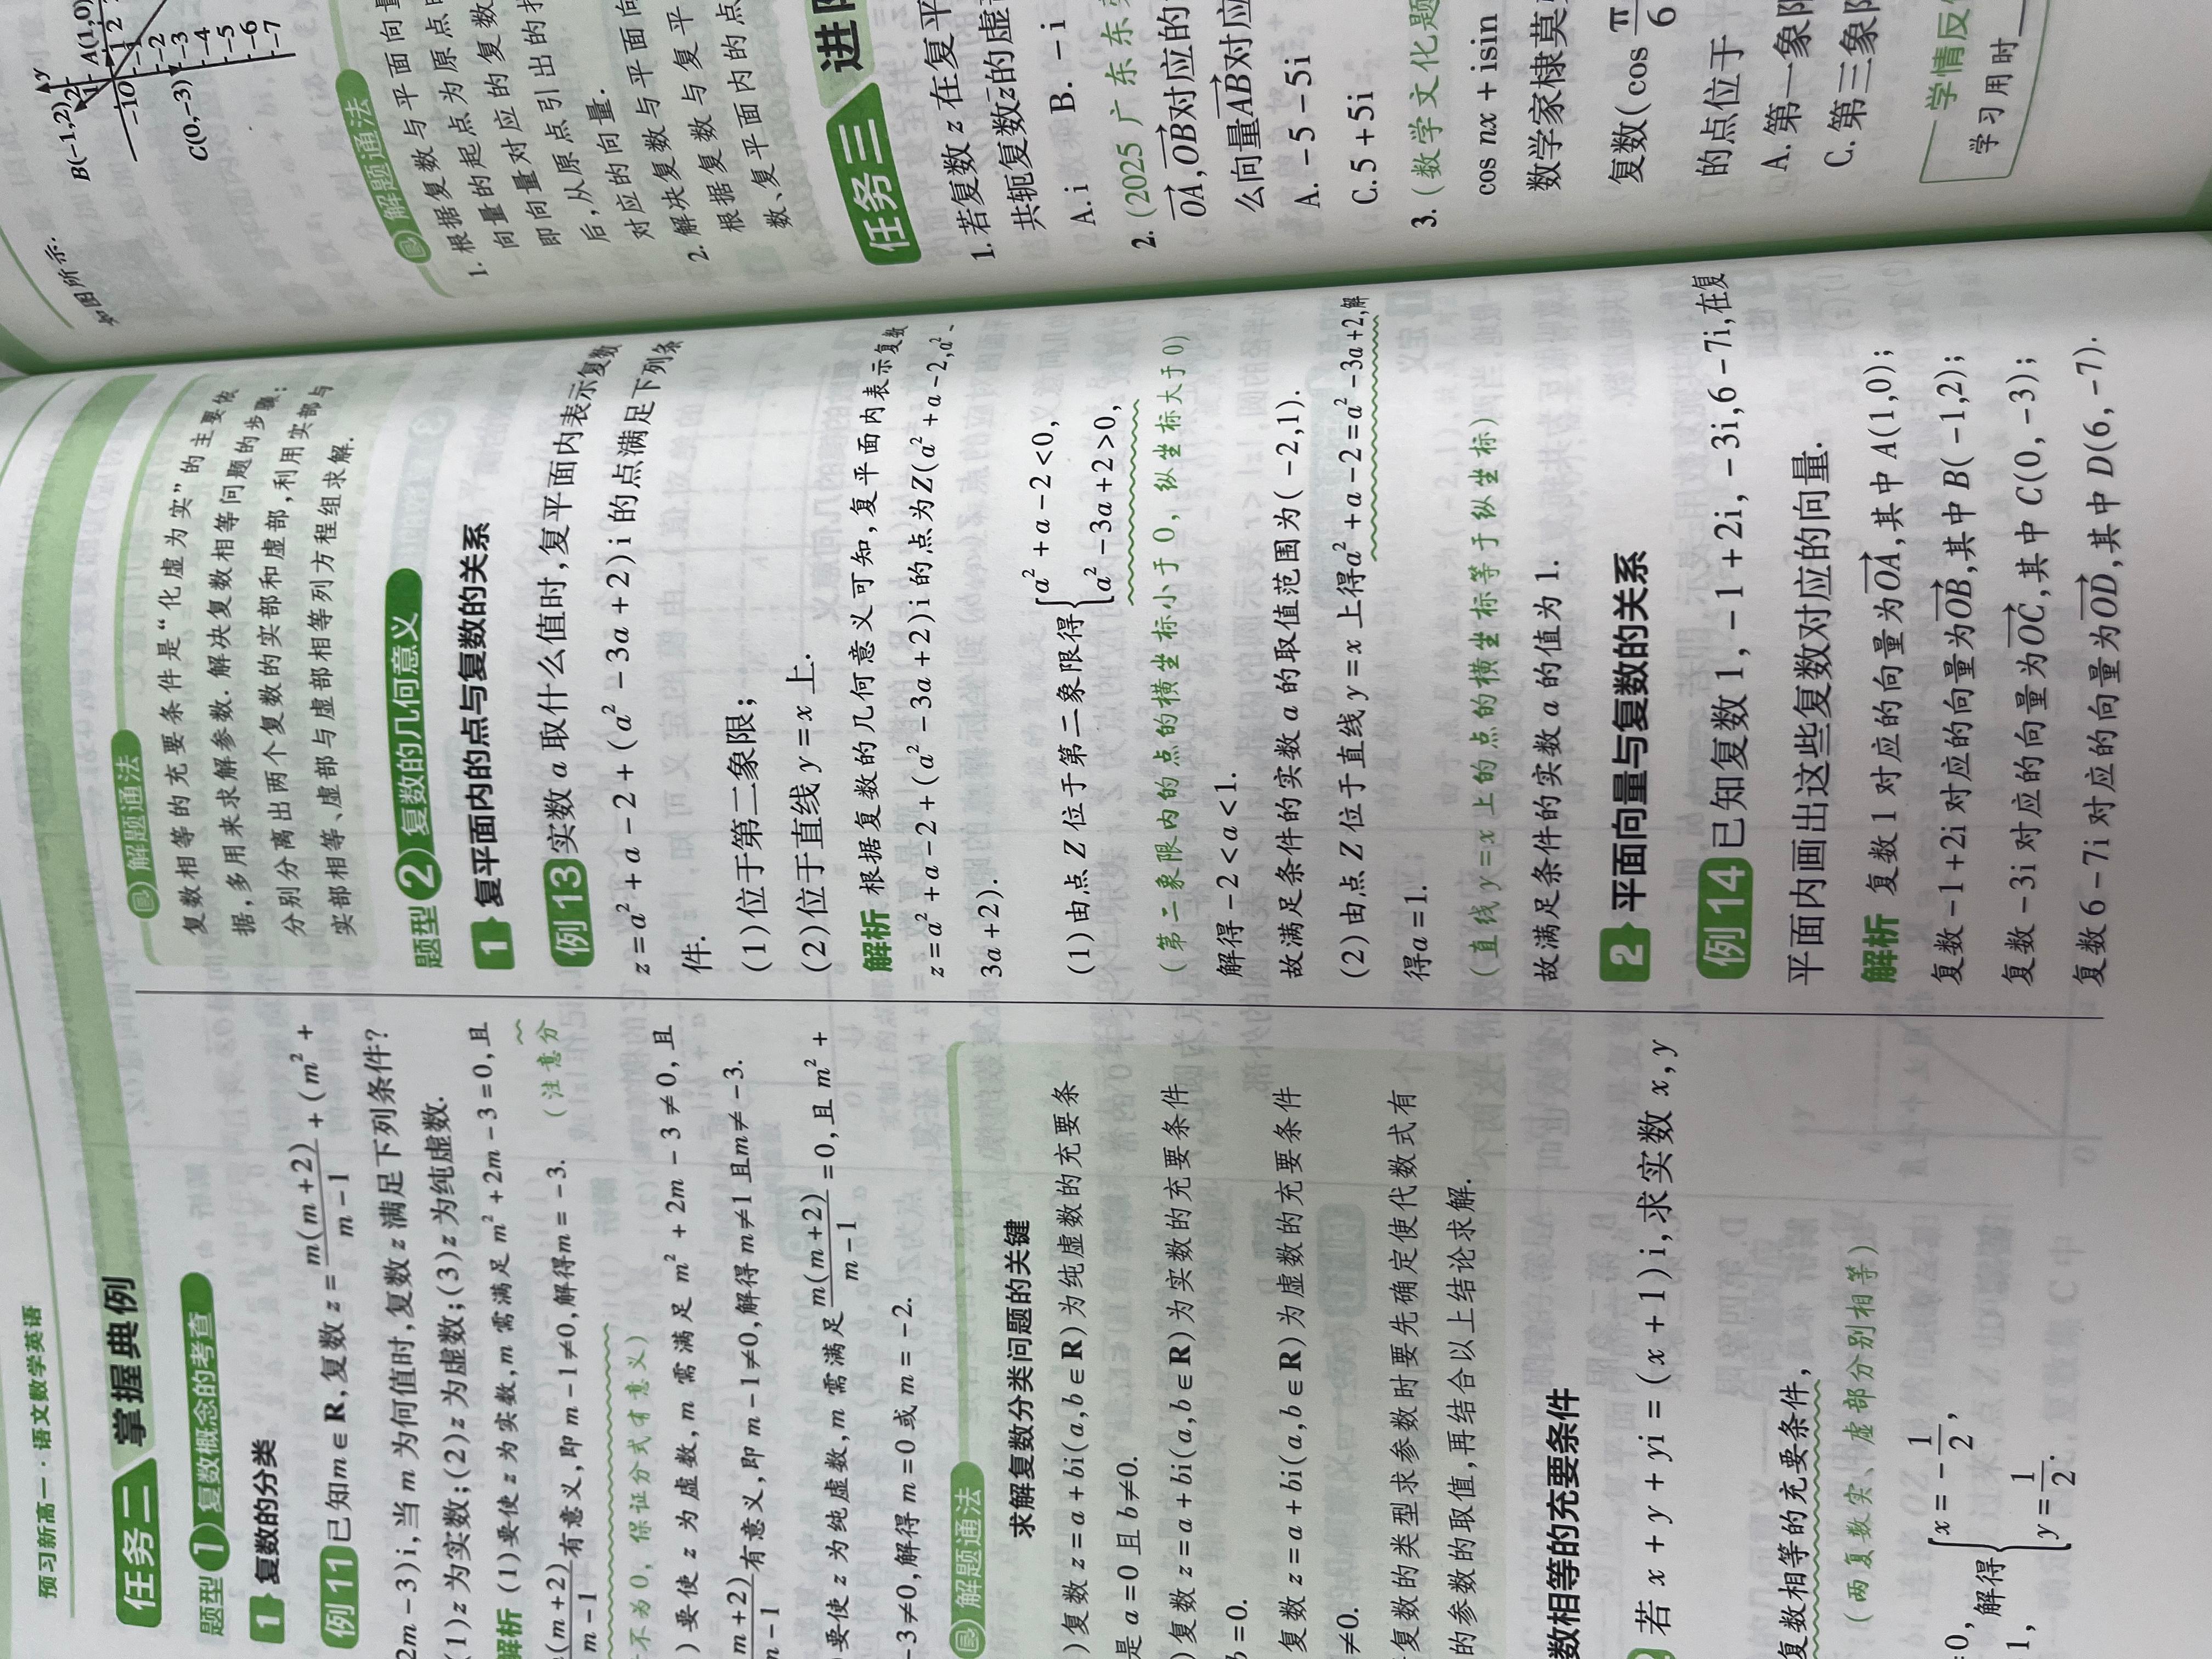 预习新高一·语文数学英语
任务二 掌握典例
题型1 复数概念的考查
1 复数的分类
例11 已知m∈R,复数z=\frac{m(m+2)}{m-1}+(m²+
2m-3)i,当m为何值时,复数z满足下列条件?
(1)z为实数;(2)z为虚数;(3)z为纯虚数.
解析 (1)要使z为实数,m需满足m²+2m-3=0,且
\frac{(m+2)}{m-1}有意义,即m-1≠0,解得m=-3. (注意分
不为0,保证分式有意义)
)要使z为虚数,m需满足m²+2m-3≠0,且
\frac{m+2)}{n-1}有意义,即m-1≠0,解得m≠1且m≠-3.
要使z为纯虚数,m需满足\frac{m(m+2)}{m-1}=0,且m²+
-3≠0,解得m=0或m=-2.
解题通法
求解复数分类问题的关键
)复数z=a+bi(a,b∈R)为纯虚数的充要条
是a=0且b≠0.
)复数z=a+bi(a,b∈R)为实数的充要条件
b=0.
复数z=a+bi(a,b∈R)为虚数的充要条件
≠0.
复数的类型求参数时要先确定使代数式有
的参数的取值,再结合以上结论求解.
数相等的充要条件
若x+y+yi=(x+1)i,求实数x,y
复数相等的充要条件,
(两复数实、虚部分别相等)
=0, 解得{x=-\frac{1}{2},
1, y=\frac{1}{2}.
解题通法
复数相等的充要条件是“化虚为实”的主要依
据,多用来求解参数.解决复数相等问题的步骤:
分别分离出两个复数的实部和虚部,利用实部与
实部相等、虚部与虚部相等列方程组求解.
题型2 复数的几何意义
1 复平面内的点与复数的关系
例13 实数a取什么值时,复平面内表示复数
z=a²+a-2+(a²-3a+2)i的点满足下列条
件.
(1)位于第二象限;
(2)位于直线y=x上.
解析 根据复数的几何意义可知,复平面内表示复数
z=a²+a-2+(a²-3a+2)i的点为Z(a²+a-2,a²-
3a+2).
(1)由点Z位于第二象限得{a²+a-2<0,
a²-3a+2>0,
(第二象限内的点的横坐标小于0,纵坐标大于0)
解得-2<a<1.
故满足条件的实数a的取值范围为(-2,1).
(2)由点Z位于直线y=x上得a²+a-2=a²-3a+2,解
得a=1.
(直线y=x上的点的横坐标等于纵坐标)
故满足条件的实数a的值为1.
2 平面向量与复数的关系
例14 已知复数1,-1+2i,-3i,6-7i,在复
平面内画出这些复数对应的向量.
解析 复数1对应的向量为\overrightarrow{OA},其中A(1,0);
复数-1+2i对应的向量为\overrightarrow{OB},其中B(-1,2);
复数-3i对应的向量为\overrightarrow{OC},其中C(0,-3);
复数6-7i对应的向量为\overrightarrow{OD},其中D(6,-7).
如图所示.
y
B(-1,2)
2
A(1,0)
-1 0 1 2
-2
-3
C(0,-3)
-4
-5
-6
-7
解题通法
1.根据复数与平面向量
向量的起点为原点
向量对应的复数
即向量对应的复数
后,从原点引出的
对应的向量.
2.解决复数与平面向
根据复数与复平
数、复平面内的点
任务三 进
1.若复数z在复平
共轭复数z̄的虚
A.i B.-i
2.(2025广东东
\overrightarrow{OA},\overrightarrow{OB}对应的
么向量\overrightarrow{AB}对应
A.-5-5i
C.5+5i
3.(数学文化题
cos nx+isin
数学家棣莫
复数(cos\frac{π}{6}
的点位于
A.第一象限
C.第三象限
学情反
学习用时